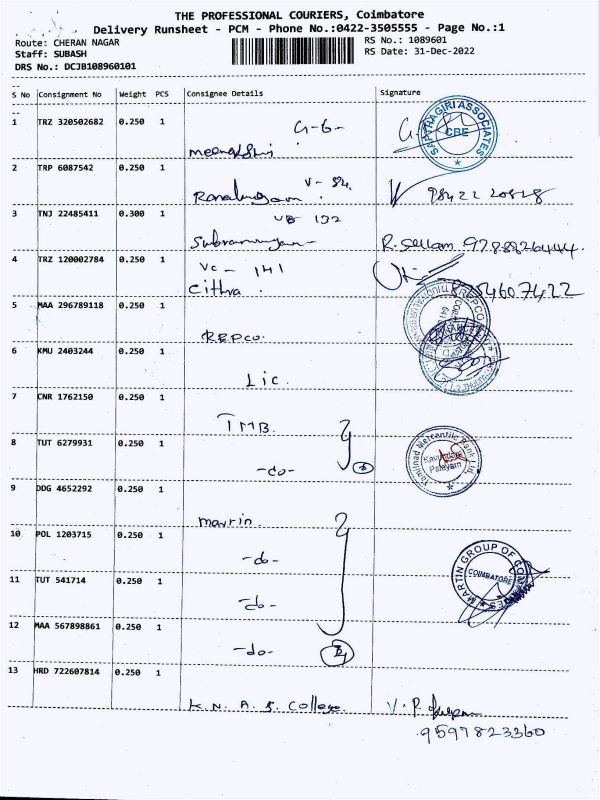 THE PROFESSIONAL COURIERS, Coimbatore
Delivery Runsheet - PCM - Phone No.:0422-3505555 - Page No.:1
Route: CHERAN NAGAR
RS No.: 1089601
Staff: SUBASH
RS Date: 31-Dec-2022
DRS No.: DCJB108960101
S No Consignment No Weight PCS Consignee Details Signature
1 TRZ 320502682 0.250 1 G-6-
SAPTHAGIRI ASSOCIATES
CBE
2 TRP 6087542 0.250 1 V - 84.
3 TNJ 22485411 0.300 1 VB - 132
R. Sellam 9788826444.
4 TRZ 120002784 0.250 1 VC - 141
Cithra
5 MAA 296789118 0.250 1
REPCO.
6 KMU 2403244 0.250 1
LIC.
7 CNR 1762150 0.250 1
TMB.
8 TUT 6279931 0.250 1
-do-
Tamilnad Mercantile Bank Ltd.
Palayam
9 DDG 4652292 0.250 1
10 POL 1203715 0.250 1
-do-
MARTIN GROUP OF COMPANIES
COIMBATORE
11 TUT 541714 0.250 1
-do-
12 MAA 567898861 0.250 1
-do-
13 HRD 722607814 0.250 1
K. N. A. S. College.
9597823360